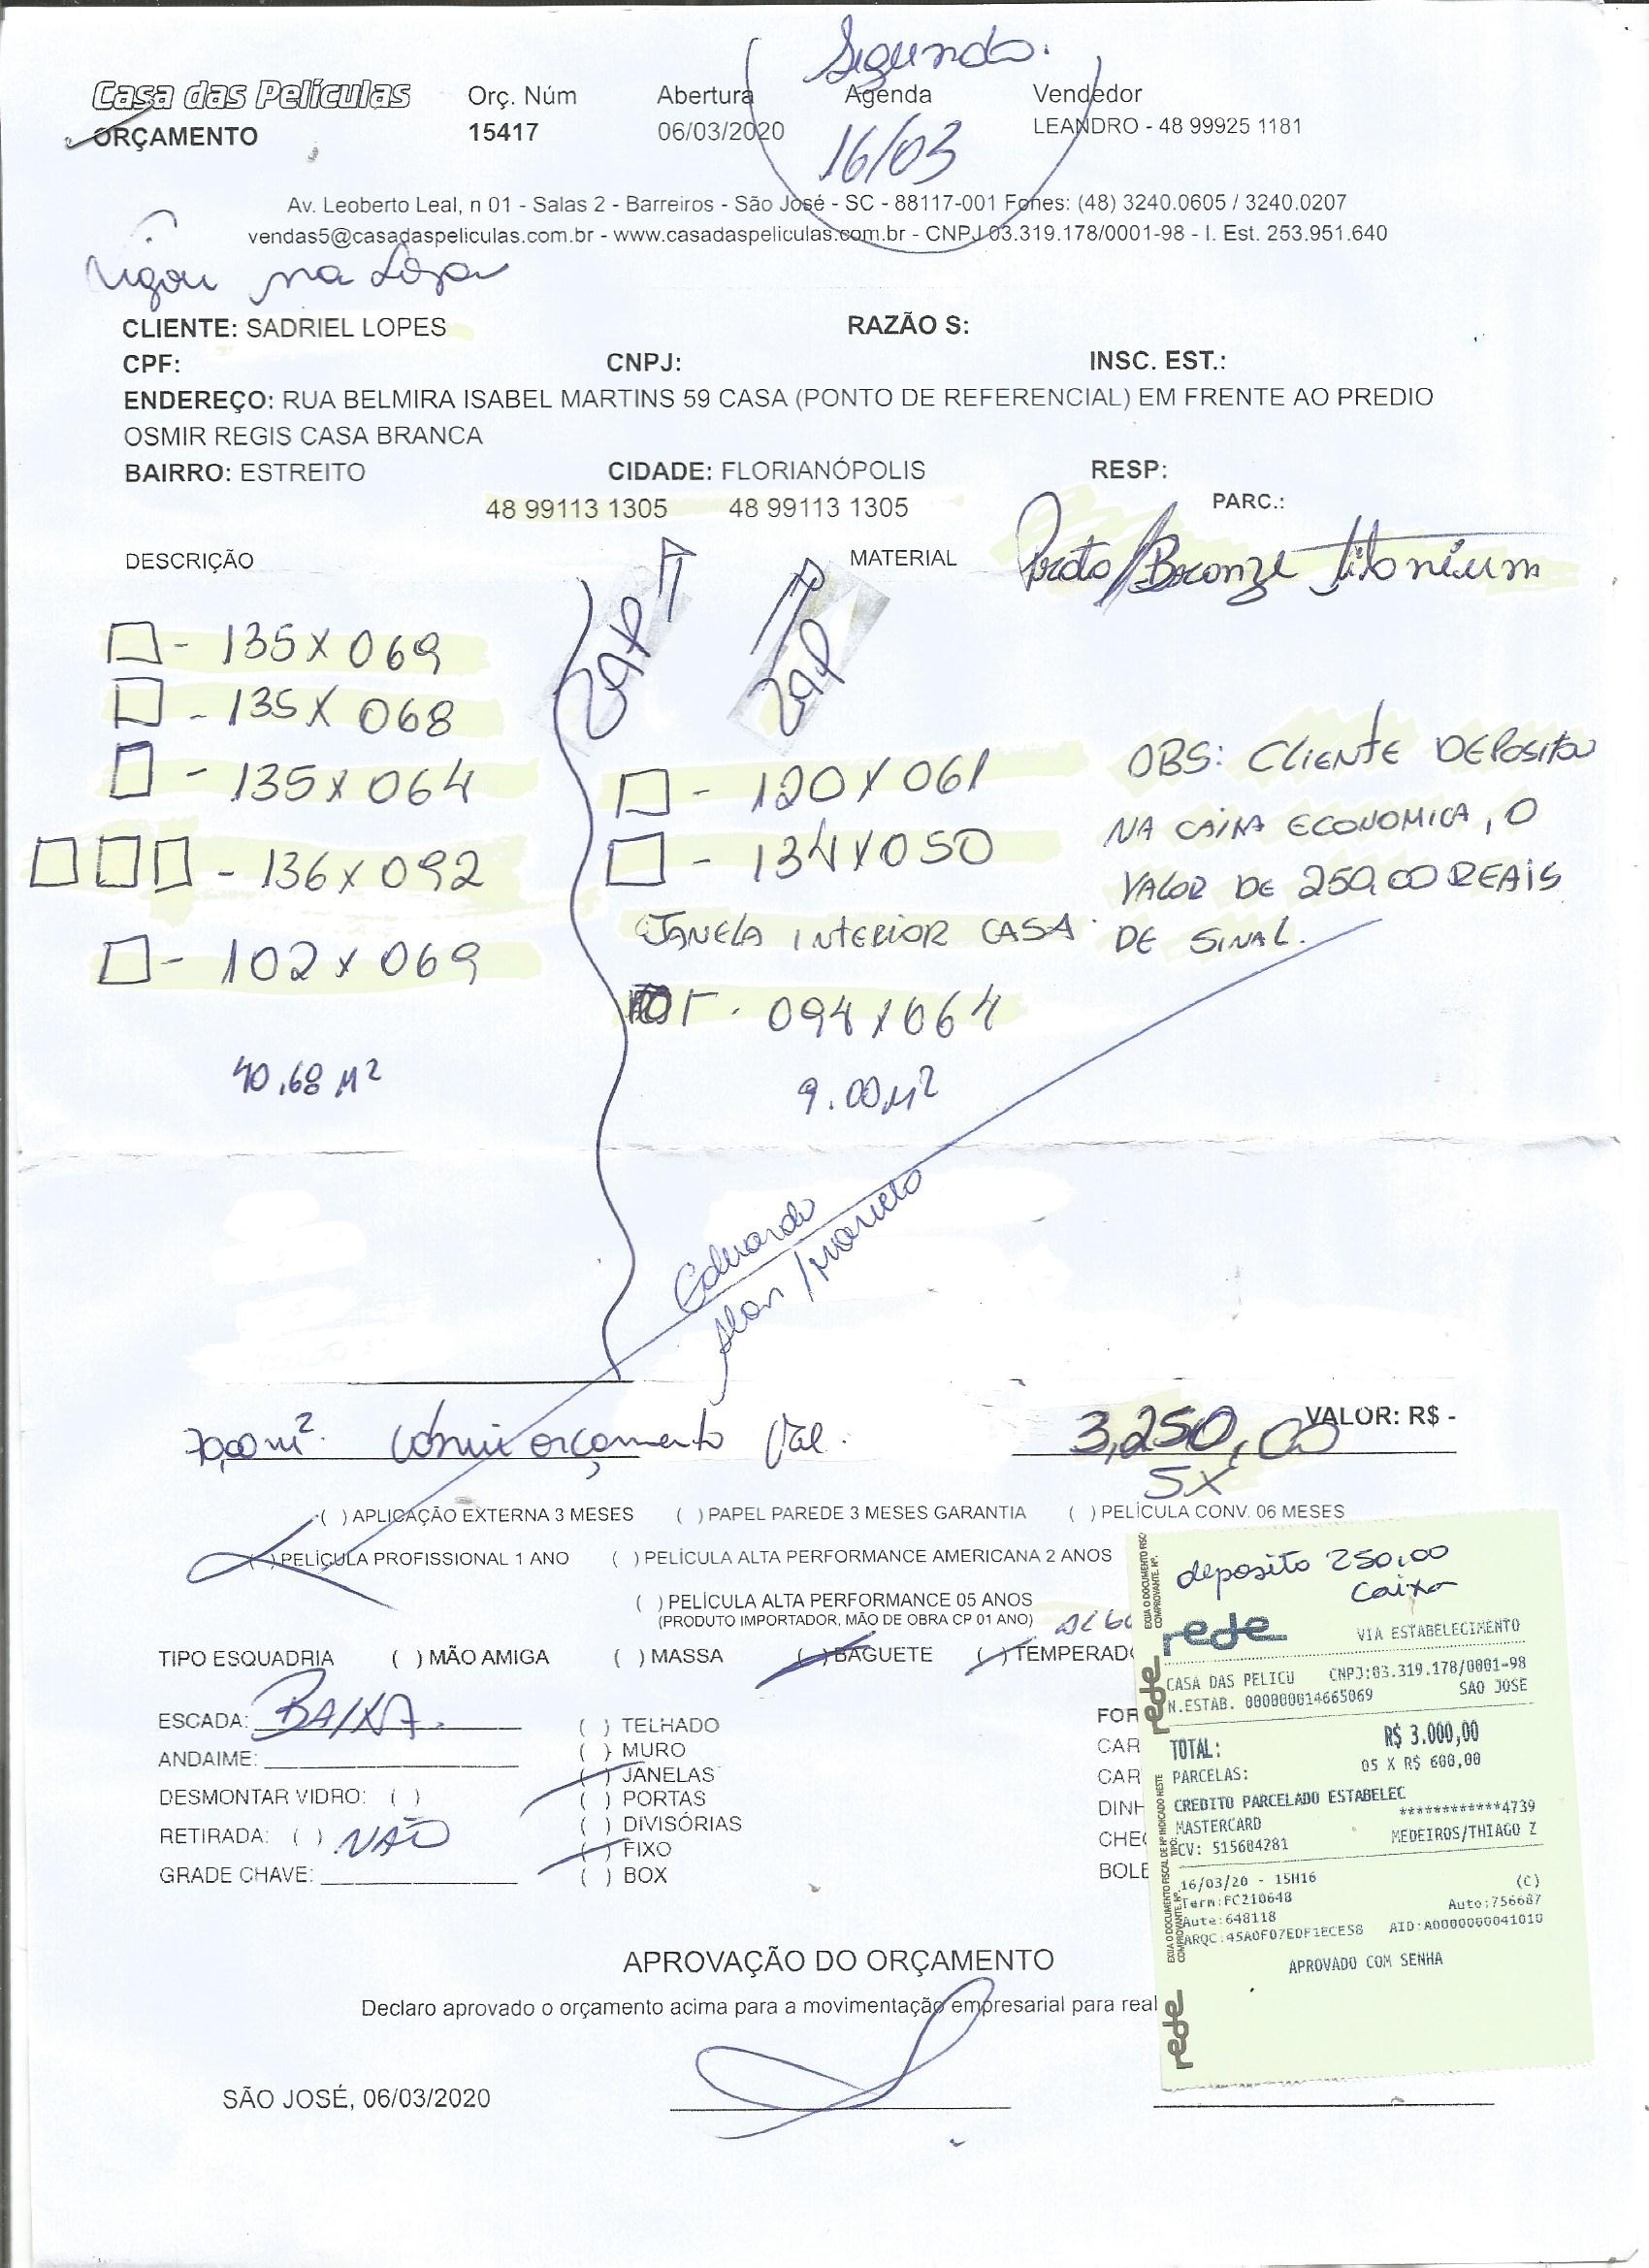 Segunda.
Casa das Películas
Orç. Núm Abertura Agenda Vendedor
ORÇAMENTO 15417 06/03/2020 16/03 LEANDRO - 48 99925 1181
Av. Leoberto Leal, n 01 - Salas 2 - Barreiros - São José - SC - 88117-001 Fones: (48) 3240.0605 / 3240.0207
vendas5@casadaspeliculas.com.br - www.casadaspeliculas.com.br - CNPJ 03.319.178/0001-98 - I. Est. 253.951.640
Ligou na Loja
CLIENTE: SADRIEL LOPES RAZÃO S:
CPF: CNPJ: INSC. EST.:
ENDEREÇO: RUA BELMIRA ISABEL MARTINS 59 CASA (PONTO DE REFERENCIAL) EM FRENTE AO PREDIO
OSMIR REGIS CASA BRANCA
BAIRRO: ESTREITO CIDADE: FLORIANÓPOLIS RESP:
48 99113 1305 48 99113 1305 PARC.:
DESCRIÇÃO MATERIAL Prata/Bronze titanium
ZAP ZAP
- 135 X 069
- 135 X 068
- 135 x 064
- 136 x 092
- 102 x 069
40,68 M²
- 120 X 061
- 134 X 050
JANELA INTERIOR CASA
- 094 X 064
9.00 M²
OBS: CLIENTE DEPOSITOU
NA CAIXA ECONOMICA, O
VALOR DE 250,00 REAIS
DE SINAL.
Eduardo
alan /
70,00 m². orçamento VALOR: R$ -
3,250,00
5X
( ) APLICAÇÃO EXTERNA 3 MESES ( ) PAPEL PAREDE 3 MESES GARANTIA ( ) PELÍCULA CONV. 06 MESES
( ) PELÍCULA PROFISSIONAL 1 ANO ( ) PELÍCULA ALTA PERFORMANCE AMERICANA 2 ANOS
( ) PELÍCULA ALTA PERFORMANCE 05 ANOS
(PRODUTO IMPORTADOR, MÃO DE OBRA CP 01 ANO)
TIPO ESQUADRIA ( ) MÃO AMIGA ( ) MASSA ( ) BAGUETE ( ) TEMPERAD
ESCADA: BAIXA.
ANDAIME:
DESMONTAR VIDRO: ( )
RETIRADA: ( ) NÃO
GRADE CHAVE:
( ) TELHADO
( ) MURO
( ) JANELAS
( ) PORTAS
( ) DIVISÓRIAS
( ) FIXO
( ) BOX
FOR
CAR
CAR
DINH
CHE
BOLE
deposito 250,00
caixa
rede
VIA ESTABELECIMENTO
CASA DAS PELICU CNPJ:03.319.178/0001-98
N.ESTAB. 000000014665069 SAO JOSE
TOTAL: R$ 3.000,00
PARCELAS: 05 X R$ 600,00
CREDITO PARCELADO ESTABELEC
MASTERCARD ************4739
CV: 515604281 MEDEIROS/THIAGO Z
16/03/20 - 15H16 (C)
Term:FC210648 Auto:756687
Aute:648118
ARQC:45A0F07EDF1ECE58 AID:A0000000041010
APROVADO COM SENHA
rede
rede
APROVAÇÃO DO ORÇAMENTO
Declaro aprovado o orçamento acima para a movimentação empresarial para real
SÃO JOSÉ, 06/03/2020